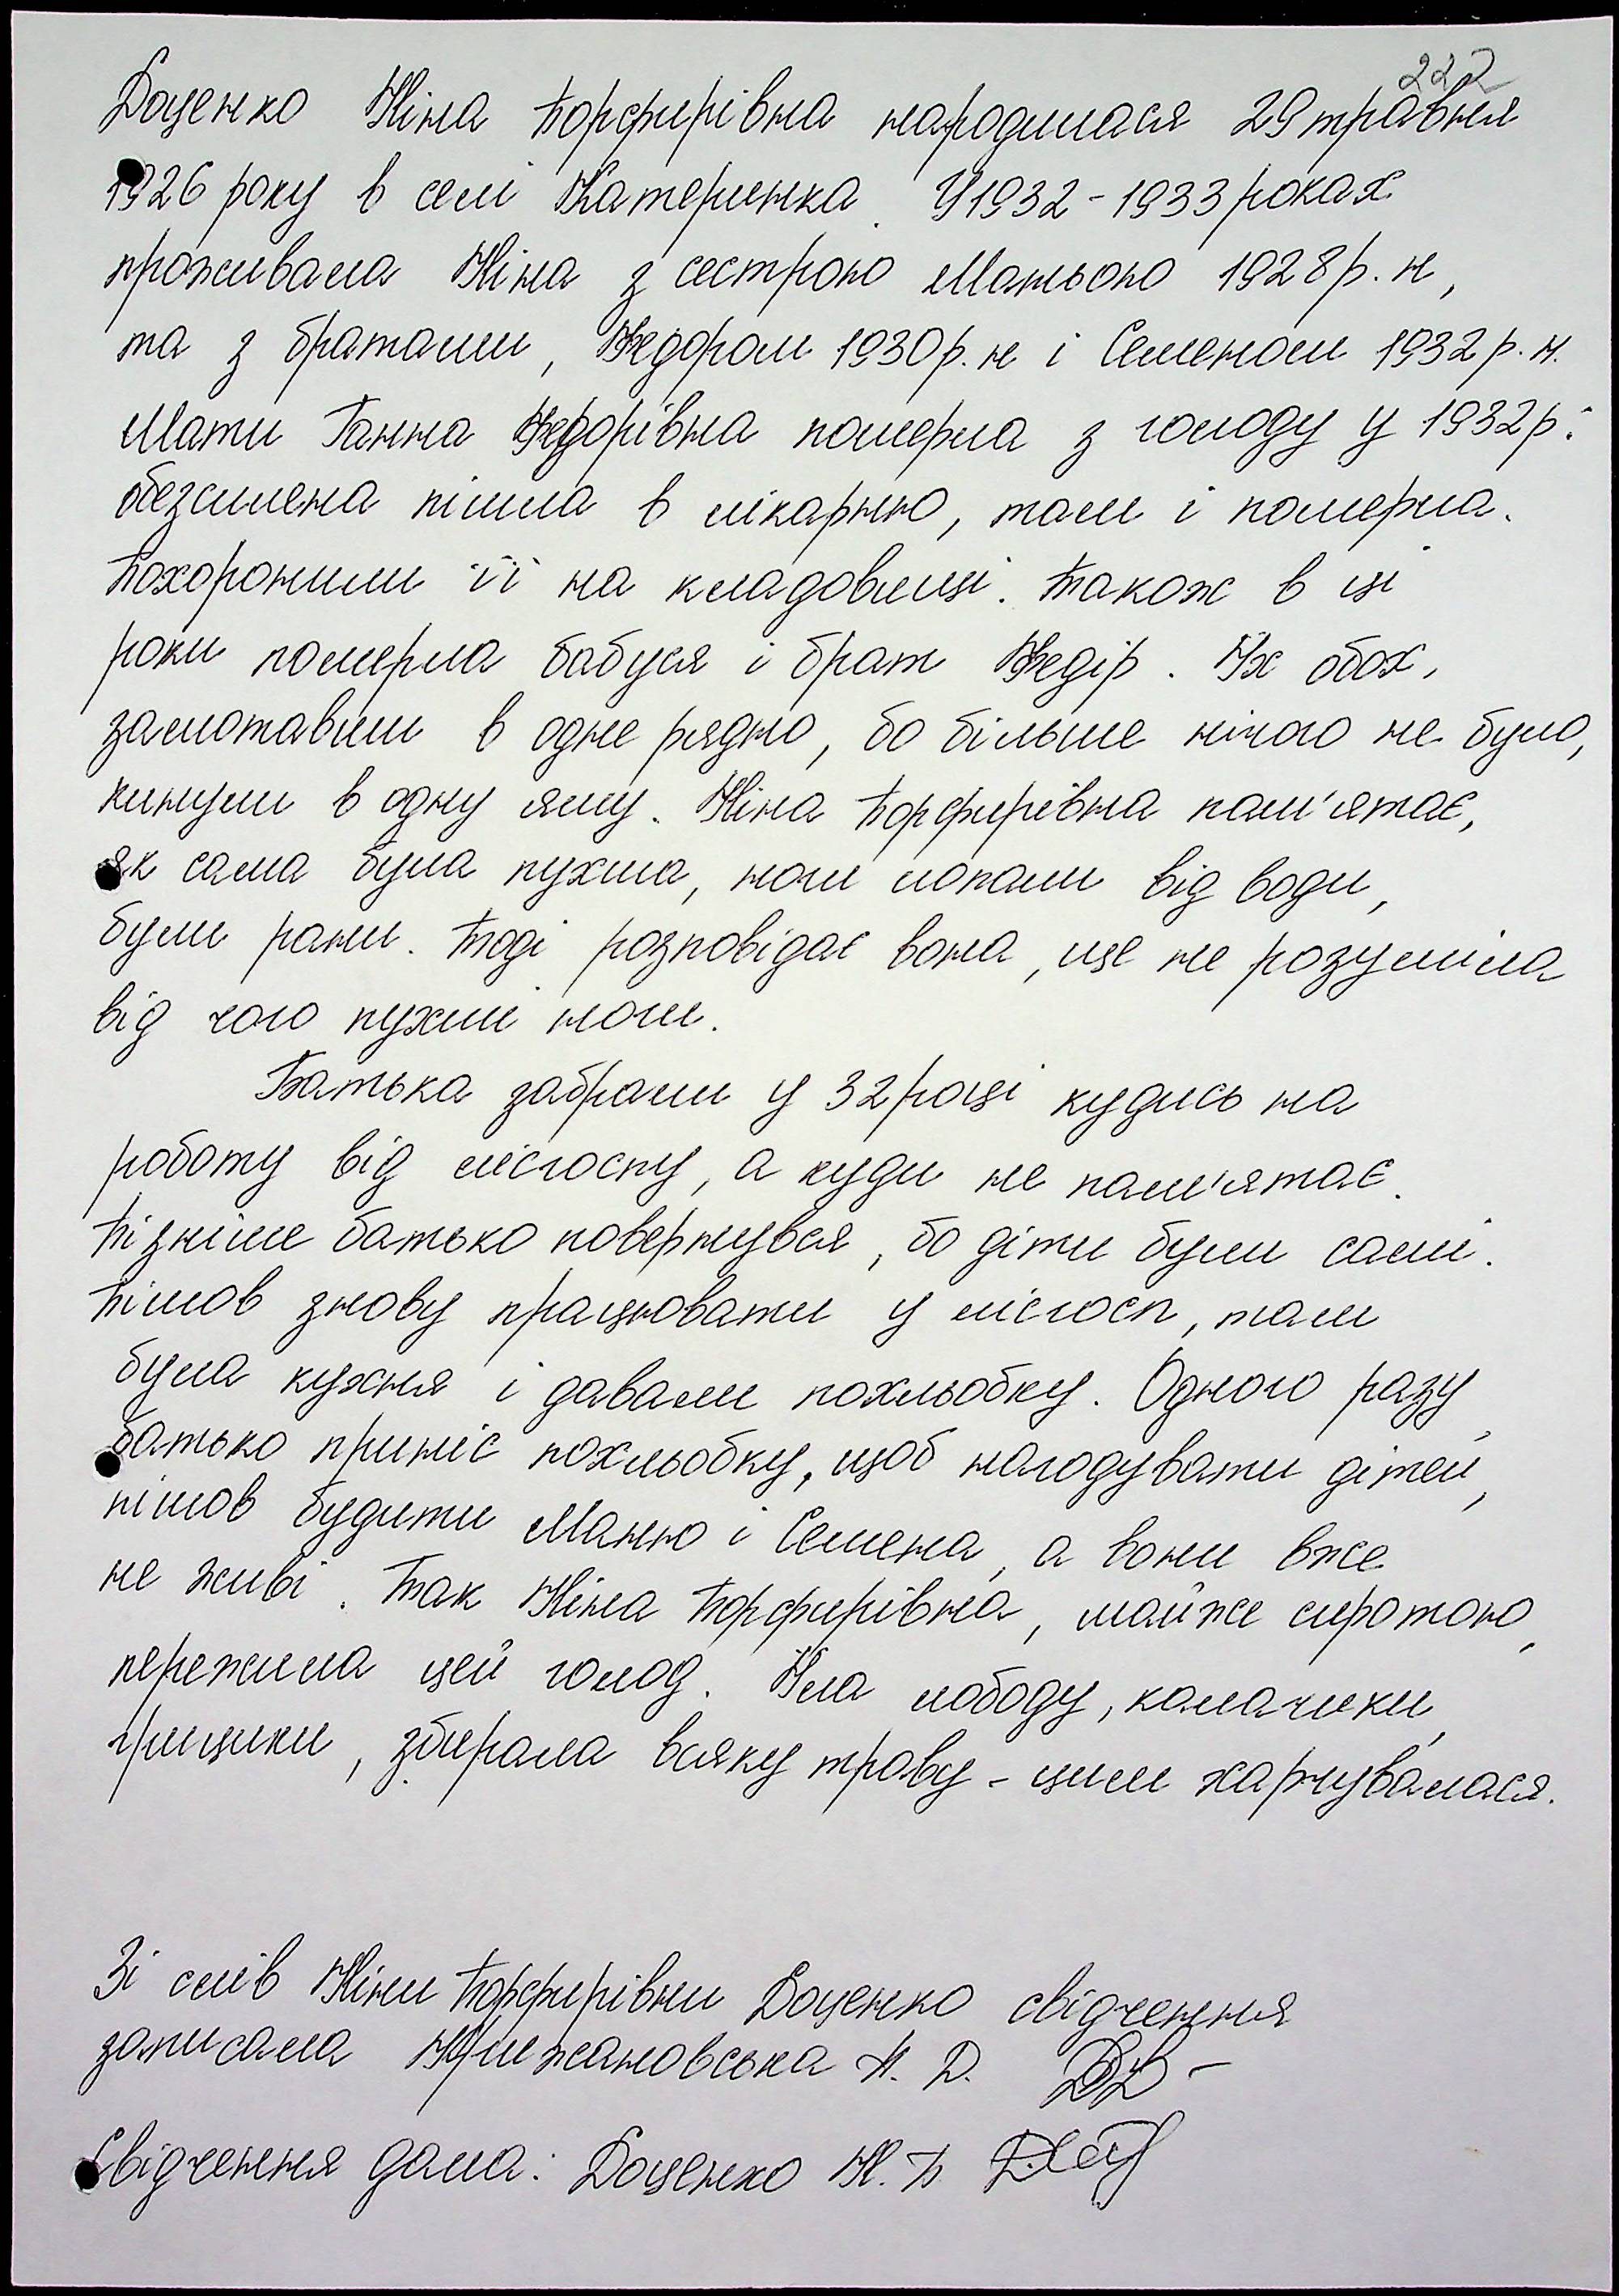 222
Доценко Ніна Порфирівна народилася 29 травня
1926 року в селі Катеринка. У 1932 - 1933 роках
проживала Ніна з сестрою Маньою 1928 р. н,
та з братами, Федором 1930 р. н і Семеном 1932 р. н.
Мати Ганна Федорівна померла з голоду у 1932 р:
обезсилена пішла в лікарню, там і померла.
Похоронили її на кладовищі. Також в ці
роки померла бабуся і брат Федір. Їх обох,
замотавши в одне рядно, бо більше нічого не було,
кинули в одну яму. Ніна Порфирівна пам'ятає,
як сама була пухла, ноги лопали від води,
були рани. Тоді розповідає вона, ще не розуміла
від чого пухли ноги.
Батька забрали у 32 році кудись на
роботу від лісгоспу, а куди не пам'ятає.
Пізніше батько повернувся, бо діти були самі.
Пішов знову працювати у лісгосп, там
була кухня і давали похльобку. Одного разу,
батько приніс похльобку, щоб нагодувати дітей,
пішов будити Маню і Семена, а вони вже
не живі. Так Ніна Порфирівна, майже сиротою,
пережила цей голод. Їла лободу, калачики,
грицики, збирала всяку траву - цим харчувалася.
Зі слів Ніни Порфирівни Доценко свідчення
записала Крижановська Т. Д.
Свідчення дала: Доценко Н. П.